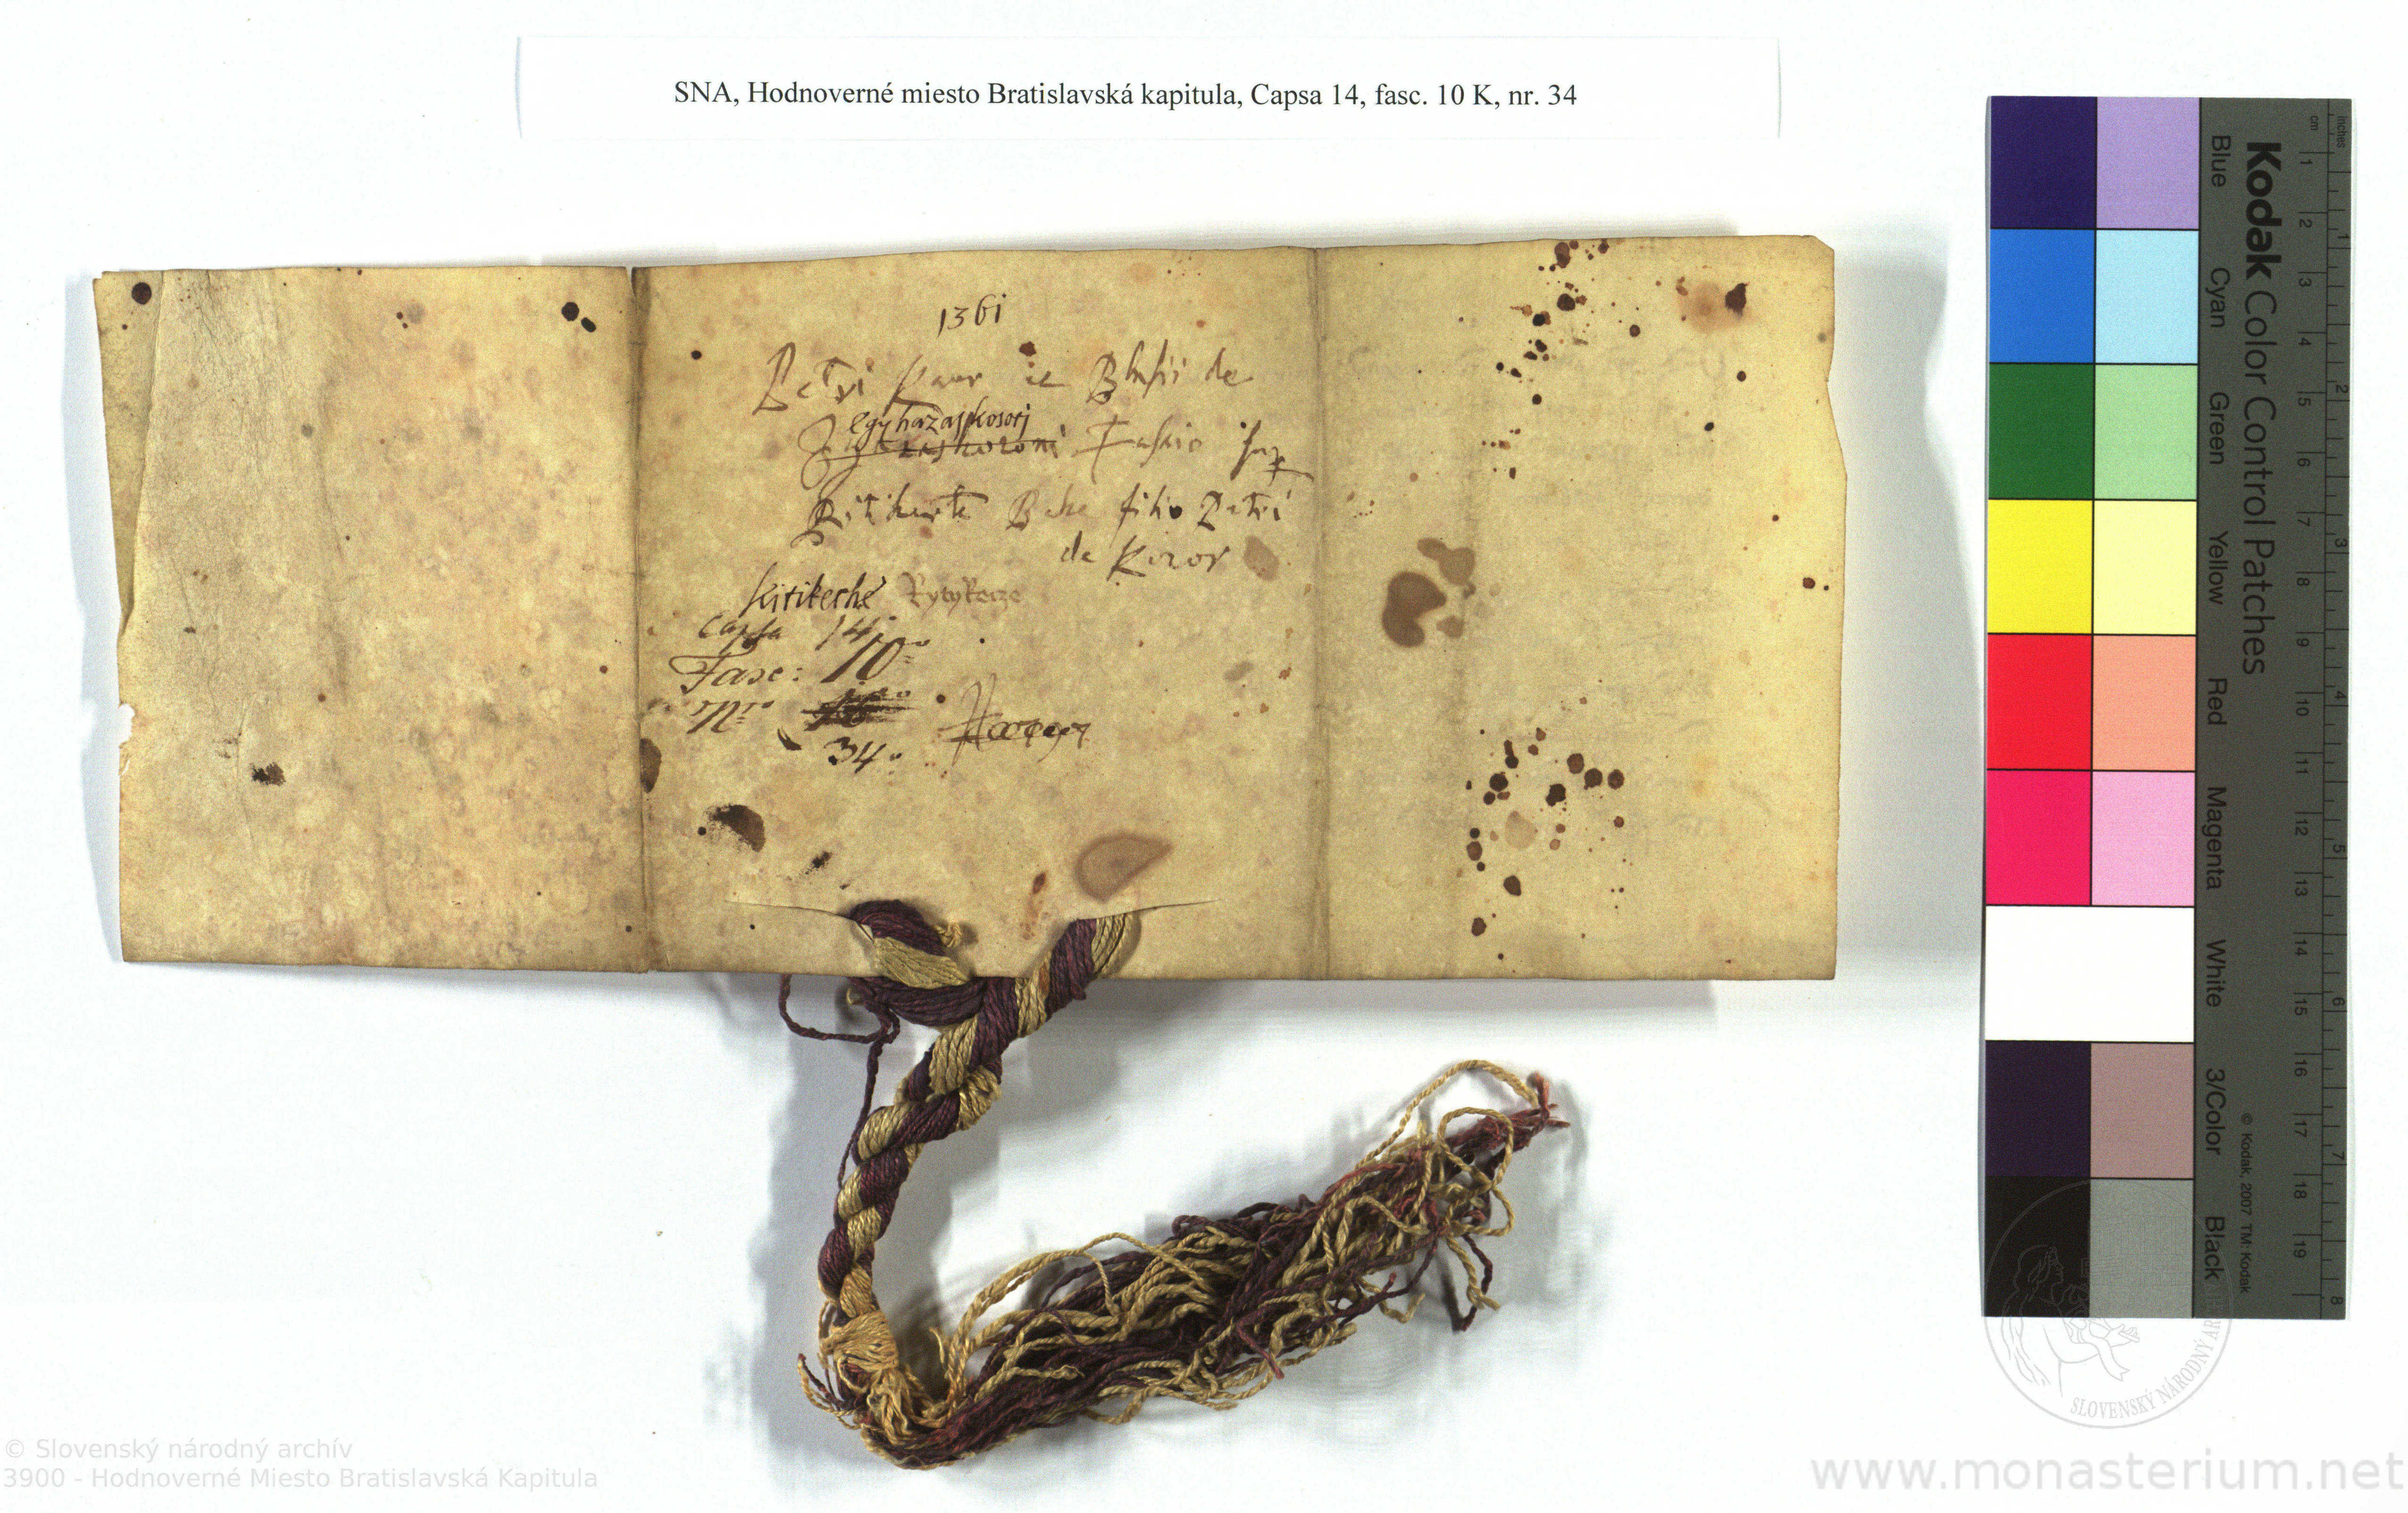 SNA, Hodnoverné miesto Bratislavská kapitula, Capsa 14, fasc. 10 K, nr. 34
1361
Petri Blasii de
egyhazaskosorj
Fassio sup
Beke filio Petri
de Kozor
Kitikerhe Kytykerze
Capsa 14
Fasc: 10
Nro
34
Kodak Color Control Patches
Blue Cyan Green Yellow Red Magenta White 3/Color Black
© Kodak, 2007 TM: Kodak
inches
cm
1 2 3 4 5 6 7 8 9 10 11 12 13 14 15 16 17 18 19
1 2 3 4 5 6 7 8
SLOVENSKÝ NÁRODNÝ AR
© Slovenský národný archív
3900 - Hodnoverné Miesto Bratislavská Kapitula
www.monasterium.net